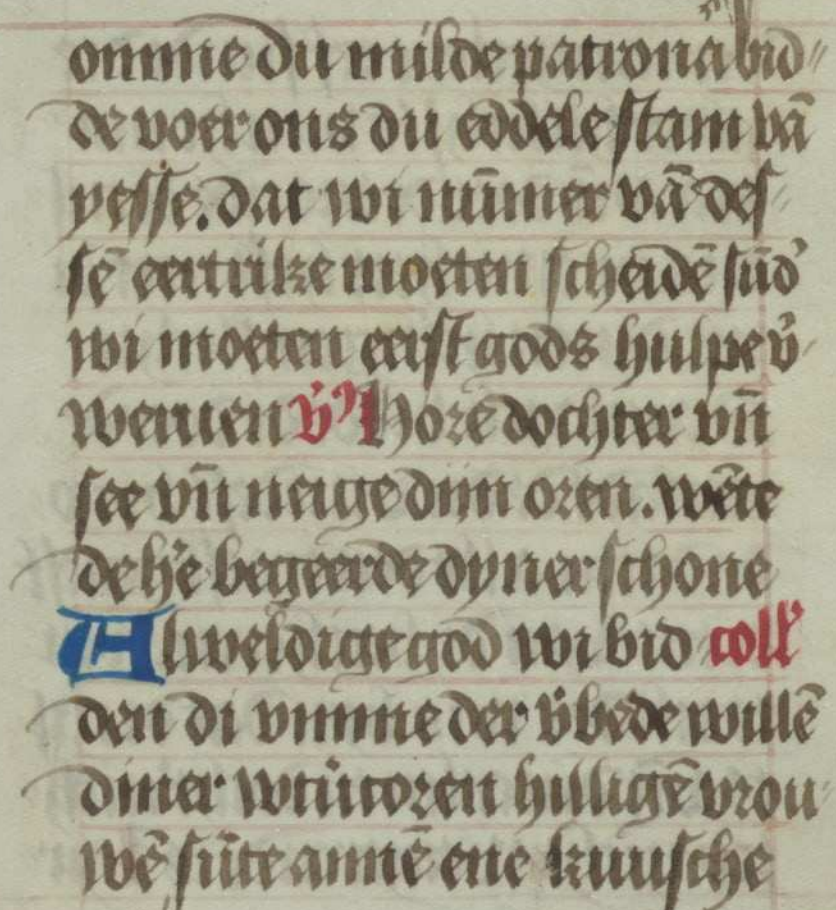 omme du milde patronā bid⸗
de voer ons du eddele stam vā
yesse. dat wi nūmer vā des⸗
sē eertrike moeten scheidē sūd᷑
wi moeten eerst gods hulpe v᷑⸗
weruen v᷑ꝰ Hore dochter vn̄
see vn̄ neige dijn oren. wēte
de he᷑ begeerde dyner schone
Alweldige god wi bid coll᷑
den di vmme der v᷑bede willē
diner wtūcoren hilligē vrou⸗
wē sūte annē ene kuusche